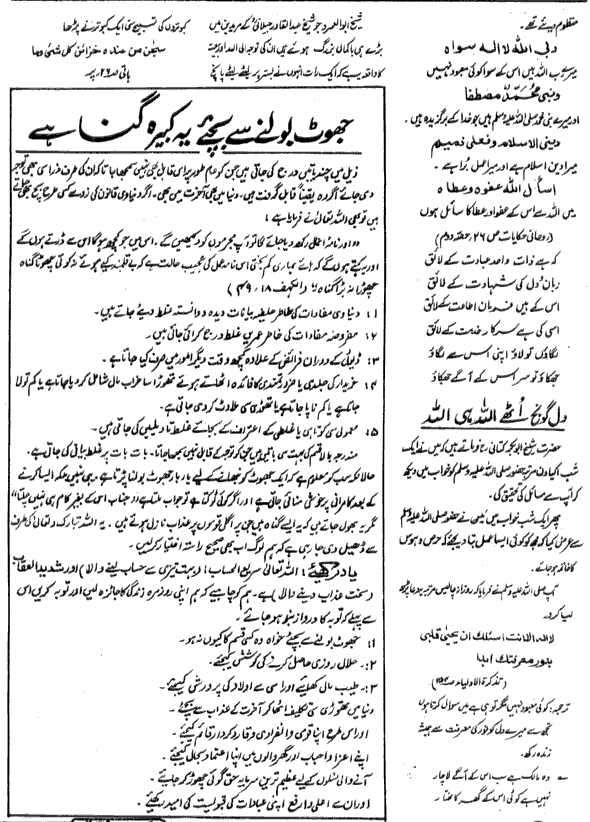 مظلوم دیئے تھے۔
ربی اللہ لا الہ سواہ
میرا رب اللہ ہیں اس کے سوا کوئی معبود نہیں
ونبی محمد مصطفا
اور میرے نبی محمد صلی اللہ علیہ وسلم ہیں جو خدا کے برگزیدہ ہیں۔
دینی الاسلام وفعلی ذمیم
میرا دین اسلام ہے اور میرا عمل بُرا ہے۔
اسأل اللہ عفوہ وعطاہ
میں اللہ سے اس کے عفو اور عطا کا سائل ہوں
(روحانی حکایات ص ۲۶، حصہ دوم)
کہ ہے ذات واحد عبادت کے لائق
زبان اور دل کی شہادت کے لائق
اس کے ہیں فرمان اطاعت کے لائق
اسی کی ہے سرکار خدمت کے لائق
لگاؤ تو لو اپنی اس سے لگاؤ
جھکاؤ تو سر اس کے آگے جھکاؤ
دل گونج اُٹھے اللہ ہی اللہ
حضرت شیخ ابوبکر کتانی رح فرماتے ہیں کہ میں نے ایک
شب اکیاون مرتبہ حضور صلی اللہ علیہ وسلم کو خواب میں دیکھ
کر آپ سے مسائل کی تحقیق کی۔
پھر ایک شب خواب میں میں نے حضور صلی اللہ علیہ وسلم
سے عرض کیا کہ مجھ کو کوئی ایسا عمل بتا دیجئے کہ حرص و ہوس
کا خاتمہ ہو جائے۔
آپ صلی اللہ علیہ وسلم نے فرمایا کہ روزانہ چالیس مرتبہ یہ دعا پڑھ
لیا کرو۔
لا الہ الا انت اسئلک ان یحیی قلبی
بنور معرفتک ابدا
(تذکرۃ الاولیاء ص
ترجمہ: کوئی معبود نہیں مگر تو ہی ہے میں سوال کرتا ہوں
تجھ سے میرے دل کو نور کی معرفت سے ہمیشہ
زندہ رکھ۔
وہ مالک ہے سب اس کے آگے لاچار
نہیں ہے کوئی اس کے گھر کا مختار
شیخ ابوالعمر جو شیخ عبدالقادر جیلانی کے مریدین میں
بڑے ہی باکمال بزرگ ہوئے ہیں ان کی توجہ الی اللہ اور
کا واقعہ ہے کہ ایک رات انہوں نے بستر پر لیٹے لیٹے پانچ
کبوتروں کی تسبیح سنی ایک کبوتر نے پڑھا
سبحٰن من عندہ خزائن کل شئ وما
باقی ص ۲۶ پر
جھوٹ بولنے سے بچئے یہ کبیرہ گناہ ہے
ذیل میں چند باتیں درج کی جاتی ہیں جن کو عام طور پر اس قابل بھی نہیں سمجھا جاتا کہ ان کی طرف ذرا سی بھی توجہ
دی جائے اگرچہ یقیناً قابل گرفت ہیں۔ دنیا میں بھی آخرت میں بھی۔ اگر دنیاوی قانون کی زد سے کسی طرح بچ بھی جاتے
ہیں تو بھی اللہ تعالیٰ نے فرمایا ہے:
"اور نامۂ اعمال رکھ دیا جائے گا تو آپ مجرموں کو دیکھیں گے۔ اس میں جو کچھ ہوگا اس سے ڈرتے ہوں گے
اور کہتے ہوں گے کہ ہائے ہماری کم بختی اس نامۂ عمل کی عجیب حالت ہے کہ بے قلمبند کئے ہوئے نہ کوئی چھوٹا گناہ
چھوڑا نہ بڑا گناہ" (الکہف ۱۸۔ ۴۹)۔
۱: دنیاوی مفادات کی خاطر حلفیہ بیانات دیدہ و دانستہ غلط دیئے جاتے ہیں۔
۲: مفروضہ مفادات کی خاطر عمریں غلط درج کرائی جاتی ہیں۔
۳: ڈیوٹی کے دوران فرائض کے علاوہ کچھ وقت دیگر امور میں صرف کیا جاتا ہے۔
۴: خریدار کی جلدی یا ضرورتمندی کا فائدہ اٹھاتے ہوئے تھوڑا سا خراب مال شامل کر دیا جاتا ہے یا کم تولا
جاتا ہے یا کم ناپا جاتا ہے یا تھوڑی سی ملاوٹ کر دی جاتی ہے۔
۵: معمولی سی کوتاہی یا غلطی کے اعتراف کے بجائے غلط تاویلیں کی جاتی ہیں۔
مندرجہ بالا قسم کی بہت سی باتیں ہیں جن کو توجہ کے قابل نہیں سمجھا جاتا۔ بات بات پر غلط بیانی کی جاتی ہے۔
حالانکہ سب کو معلوم ہے کہ ایک جھوٹ کو نبھانے کے لیے بار بار جھوٹ بولنا پڑتا ہے۔ یہی نہیں بلکہ ایسا کرنے
کے بعد کامرانی پر خوشی منائی جاتی ہے اور اگر کوئی ٹوکتا ہے تو جواب ملتا ہے "جناب اس کے بغیر کام ہی نہیں چلتا"
مگر یہ بھول جاتے ہیں کہ یہ ایسے گناہ ہیں جن پر اگلی قوموں پر عذاب نازل ہوئے ہیں۔ یہ اللہ تبارک و تعالیٰ کی طرف
سے ڈھیل دی جا رہی ہے کہ ہم لوگ اب بھی صحیح راستہ اختیار کر لیں۔
یاد رکھئے: اللہ تعالیٰ سریع الحساب، (بہت تیزی سے حساب لینے والا) اور شدید العقاب
(سخت عذاب دینے والا) ہے۔ ہم کو چاہیے کہ ہم اپنی روز مرہ زندگی کا جائزہ لیں اور توبہ کریں اس
سے پہلے کہ توبہ کا دروازہ بند ہو جائے۔
۱: جھوٹ بولنے سے بچئے خواہ وہ کسی قسم کا کیوں نہ ہو۔
۲: حلال روزی حاصل کرنے کی کوشش کیجئے۔
۳: طیب مال کھائیے اور اسی سے اولاد کی پرورش کیجئے۔
دنیا میں تھوڑی سی تکلیف اٹھا کر آخرت کے عذاب سے بچئے۔
اور اس طرح اپنا قومی و انفرادی وقار و کردار قائم کیجئے۔
اپنے اعزا و احباب اور گھر والوں میں اپنا اعتماد بحال کیجئے۔
آنے والی نسلوں کے لیے عظیم ترین سرمایہ حق گوئی چھوڑ کر جائیے۔
اور ان سے اعلیٰ و ارفع اپنی عبادات کی قبولیت کی امید رکھئے۔